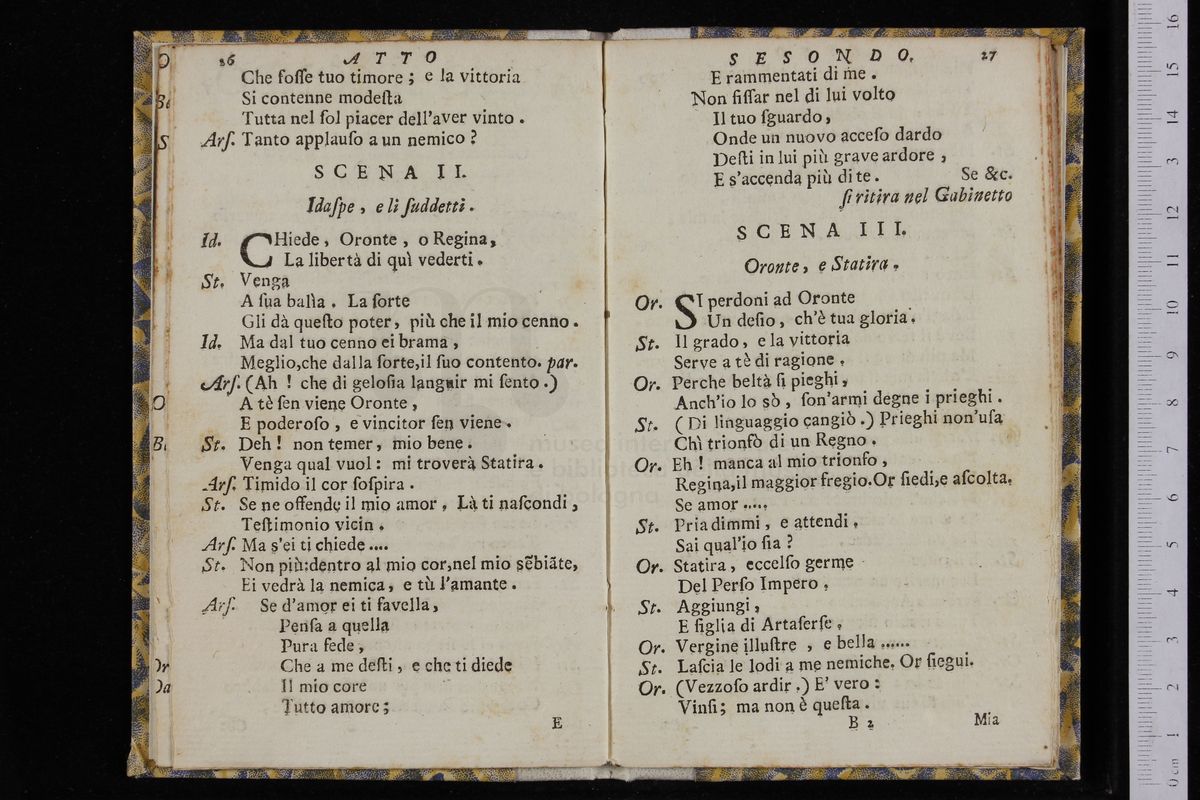 26 ATTO
Che foſſe tuo timore ; e la vittoria
Si contenne modeſta
Tutta nel ſol piacer dell'aver vinto .
Arſ. Tanto applauſo a un nemico ?
SCENA II.
Idaſpe , e li ſuddetti .
Id. CHiede , Oronte , o Regina,
La libertà di quì vederti .
St. Venga
A ſua balìa . La ſorte
Gli dà queſto poter , più che il mio cenno .
Id. Ma dal tuo cenno ei brama ,
Meglio,che dalla ſorte,il ſuo contento. par.
Arſ. (Ah ! che di geloſia languir mi ſento .)
A tè ſen viene Oronte ,
E poderoſo , e vincitor ſen viene .
St. Deh ! non temer , mio bene .
Venga qual vuol : mi troverà Statira .
Arſ. Timido il cor ſoſpira .
St. Se ne offende il mio amor , Là ti naſcondi ,
Teſtimonio vicin .
Arſ. Ma s'ei ti chiede ....
St. Non più:dentro al mio cor,nel mio sẽbiãte,
Ei vedrà la nemica , e tù l'amante .
Arſ. Se d'amor ei ti favella ,
Penſa a quella
Pura fede ,
Che a me deſti , e che ti diede
Il mio core
Tutto amore ;
E
SESONDO. 27
E rammentati di me .
Non fiſſar nel di lui volto
Il tuo ſguardo ,
Onde un nuovo acceſo dardo
Deſti in lui più grave ardore ,
E s'accenda più di te . Se &c.
ſi ritira nel Gabinetto
SCENA III.
Oronte , e Statira .
Or. SI perdoni ad Oronte
Un deſio , ch'è tua gloria .
St. Il grado , e la vittoria
Serve a tè di ragione .
Or. Perche beltà ſi pieghi ,
Anch'io lo sò , ſon'armi degne i prieghi .
St. ( Di linguaggio cangiò .) Prieghi non'uſa
Chì trionfò di un Regno .
Or. Eh ! manca al mio trionfo ,
Regina,il maggior fregio.Or ſiedi,e aſcolta.
Se amor .....
St. Pria dimmi , e attendi .
Sai qual'io ſia ?
Or. Statira , eccelſo germe
Del Perſo Impero .
St. Aggiungi ,
E figlia di Artaſerſe .
Or. Vergine illuſtre , e bella ......
St. Laſcia le lodi a me nemiche. Or ſiegui.
Or. (Vezzoſo ardir .) E' vero :
Vinſi ; ma non è queſta .
B 2 Mia